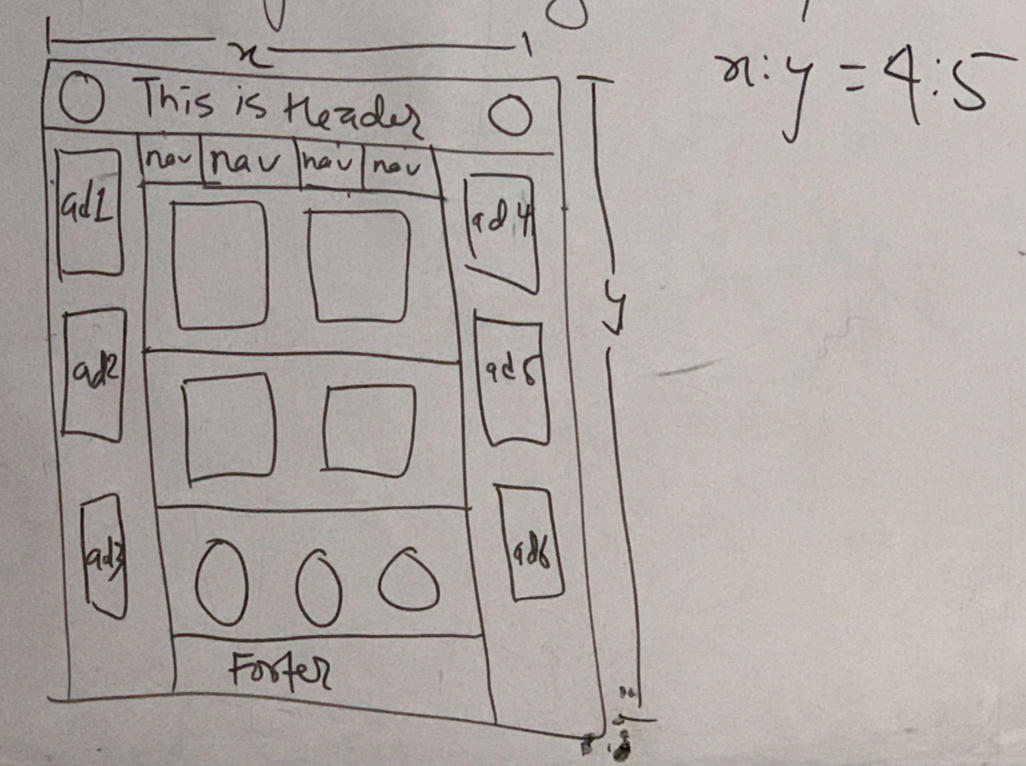 x
x:y = 4:5
This is Header
nav nav nav nav
ad1
ad4
y
ad2
ad5
ad3
ad6
Footer